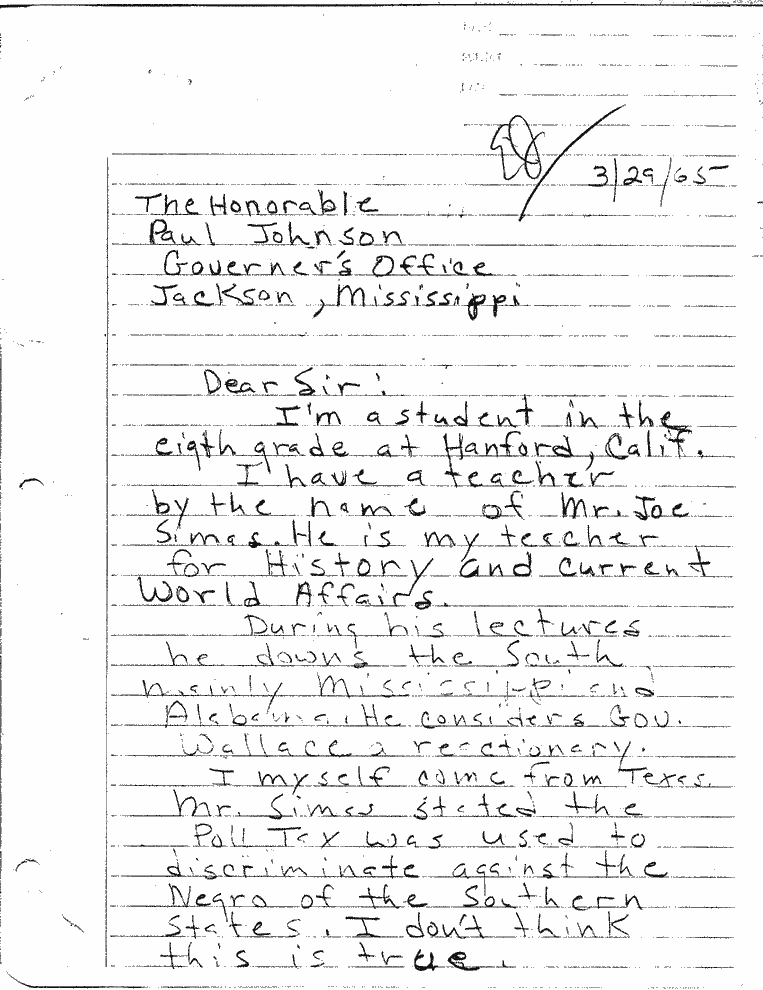 3/29/65
The Honorable
Paul Johnson
Governer's Office
Jackson, Mississippi
Dear Sir:
I'm a student in the
eigth grade at Hanford, Calif.
I have a teacher
by the name of Mr. Joe
Simas. He is my teacher
for History and current
World Affairs.
During his lectures
he downs the South,
mainly Mississippi and
Alabama. He considers Gov.
Wallace a reactionary.
I myself come from Texas.
Mr. Simas stated the
Poll Tax was used to
discriminate against the
Negro of the Southern
States. I don't think
this is true.